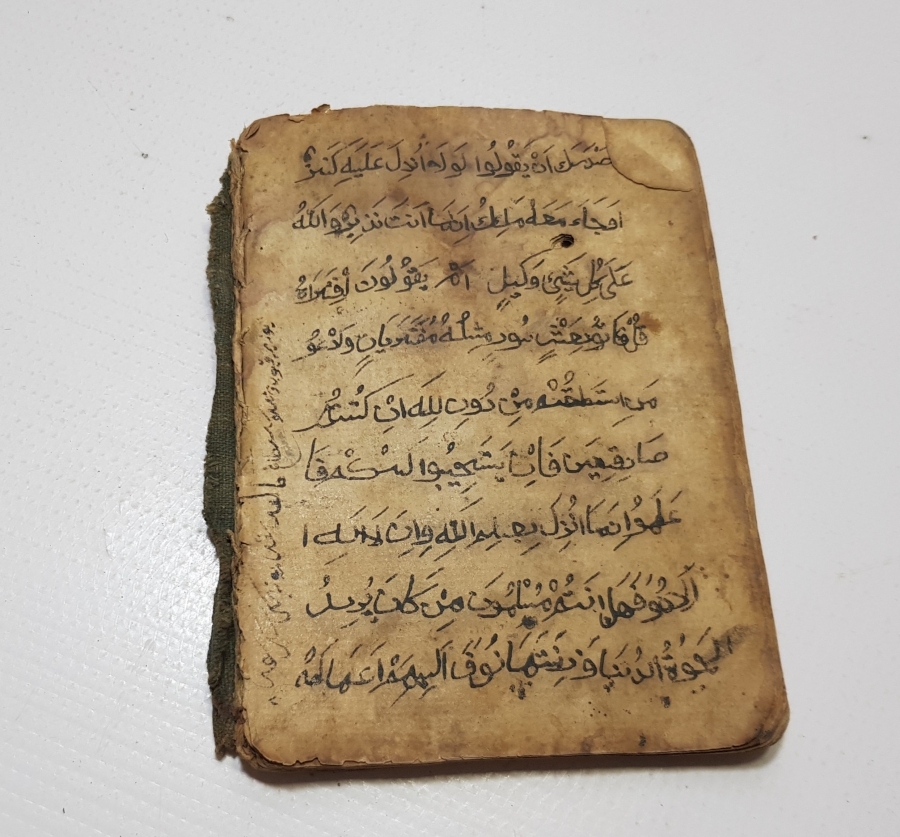 صَدْرُكَ اَنْ يَقُوْلُوا لَوْلَا اُنْزِلَ عَلَيْهِ كَنْزٌ
اَوْجَاءَ مَعَهُ مَلَكٌ اِنَّمَا اَنْتَ نَذِيْرٌ وَاللّٰهُ
عَلَى كُلِّ شَيْئٍ وَكِيلٍ اَمْ يَقُوْلُوْنَ افْتَرَاهُ
قُلْ فَاتُو بِعَشْرِ سُوَرٍ مِثْلِهِ مُفْتَرَيَاتٍ وَادْعُو
مَنِ اسْتَطَعْتُمْ مِنْ دُوْنِ للّٰهِ اِنْ كُنْتُمْ
صَادِقِيْنَ فَاِنْ يَسْتَجِيْبُوا لَكُمْ فَا
عْلَمُوا اَنَّمَا اُنْزِلَ بِعِلْمِ اللّٰهِ وَاَنْ لَا اِلٰهَ ا
اِلَّا هُوَ فَهَلْ اَنْتُمْ مُسْلِمُوْنَ مَنْ كَانَ يُرِيْدُ
الْحَيٰوةَ الدُّنْيَا وَزِيْنَتَهَا نُوَفِّ اِلَيْهِمْ اَعْمَالَهُمْ